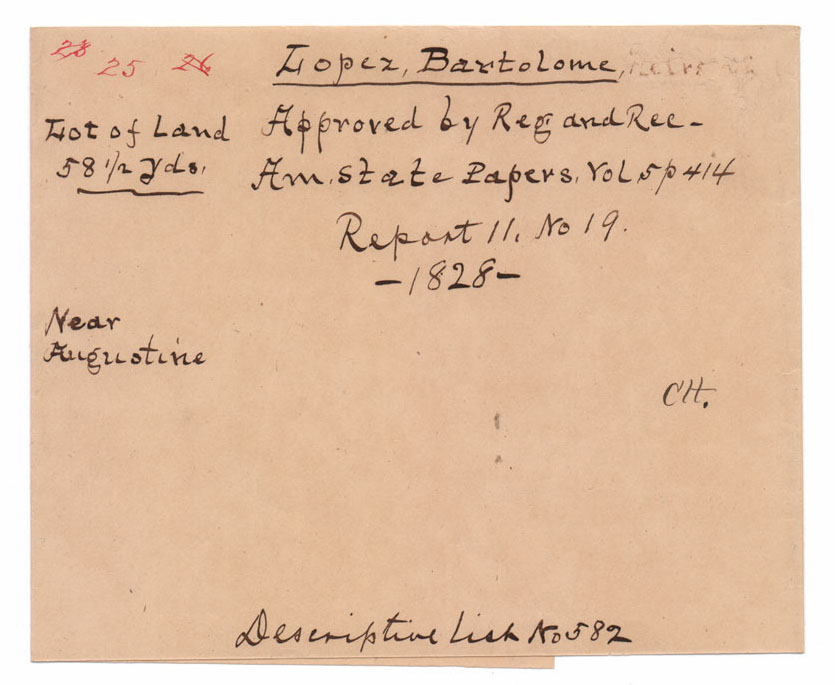 28 25 26
Lopez, Bartolome, Heirs of
Lot of Land
58 1/2 yds.
Approved by Reg and Rec-
Am. State Papers, Vol 5 p 414
Report 11. No 19.
-1828-
Near
Augustine
CH.
Descriptive List No 582